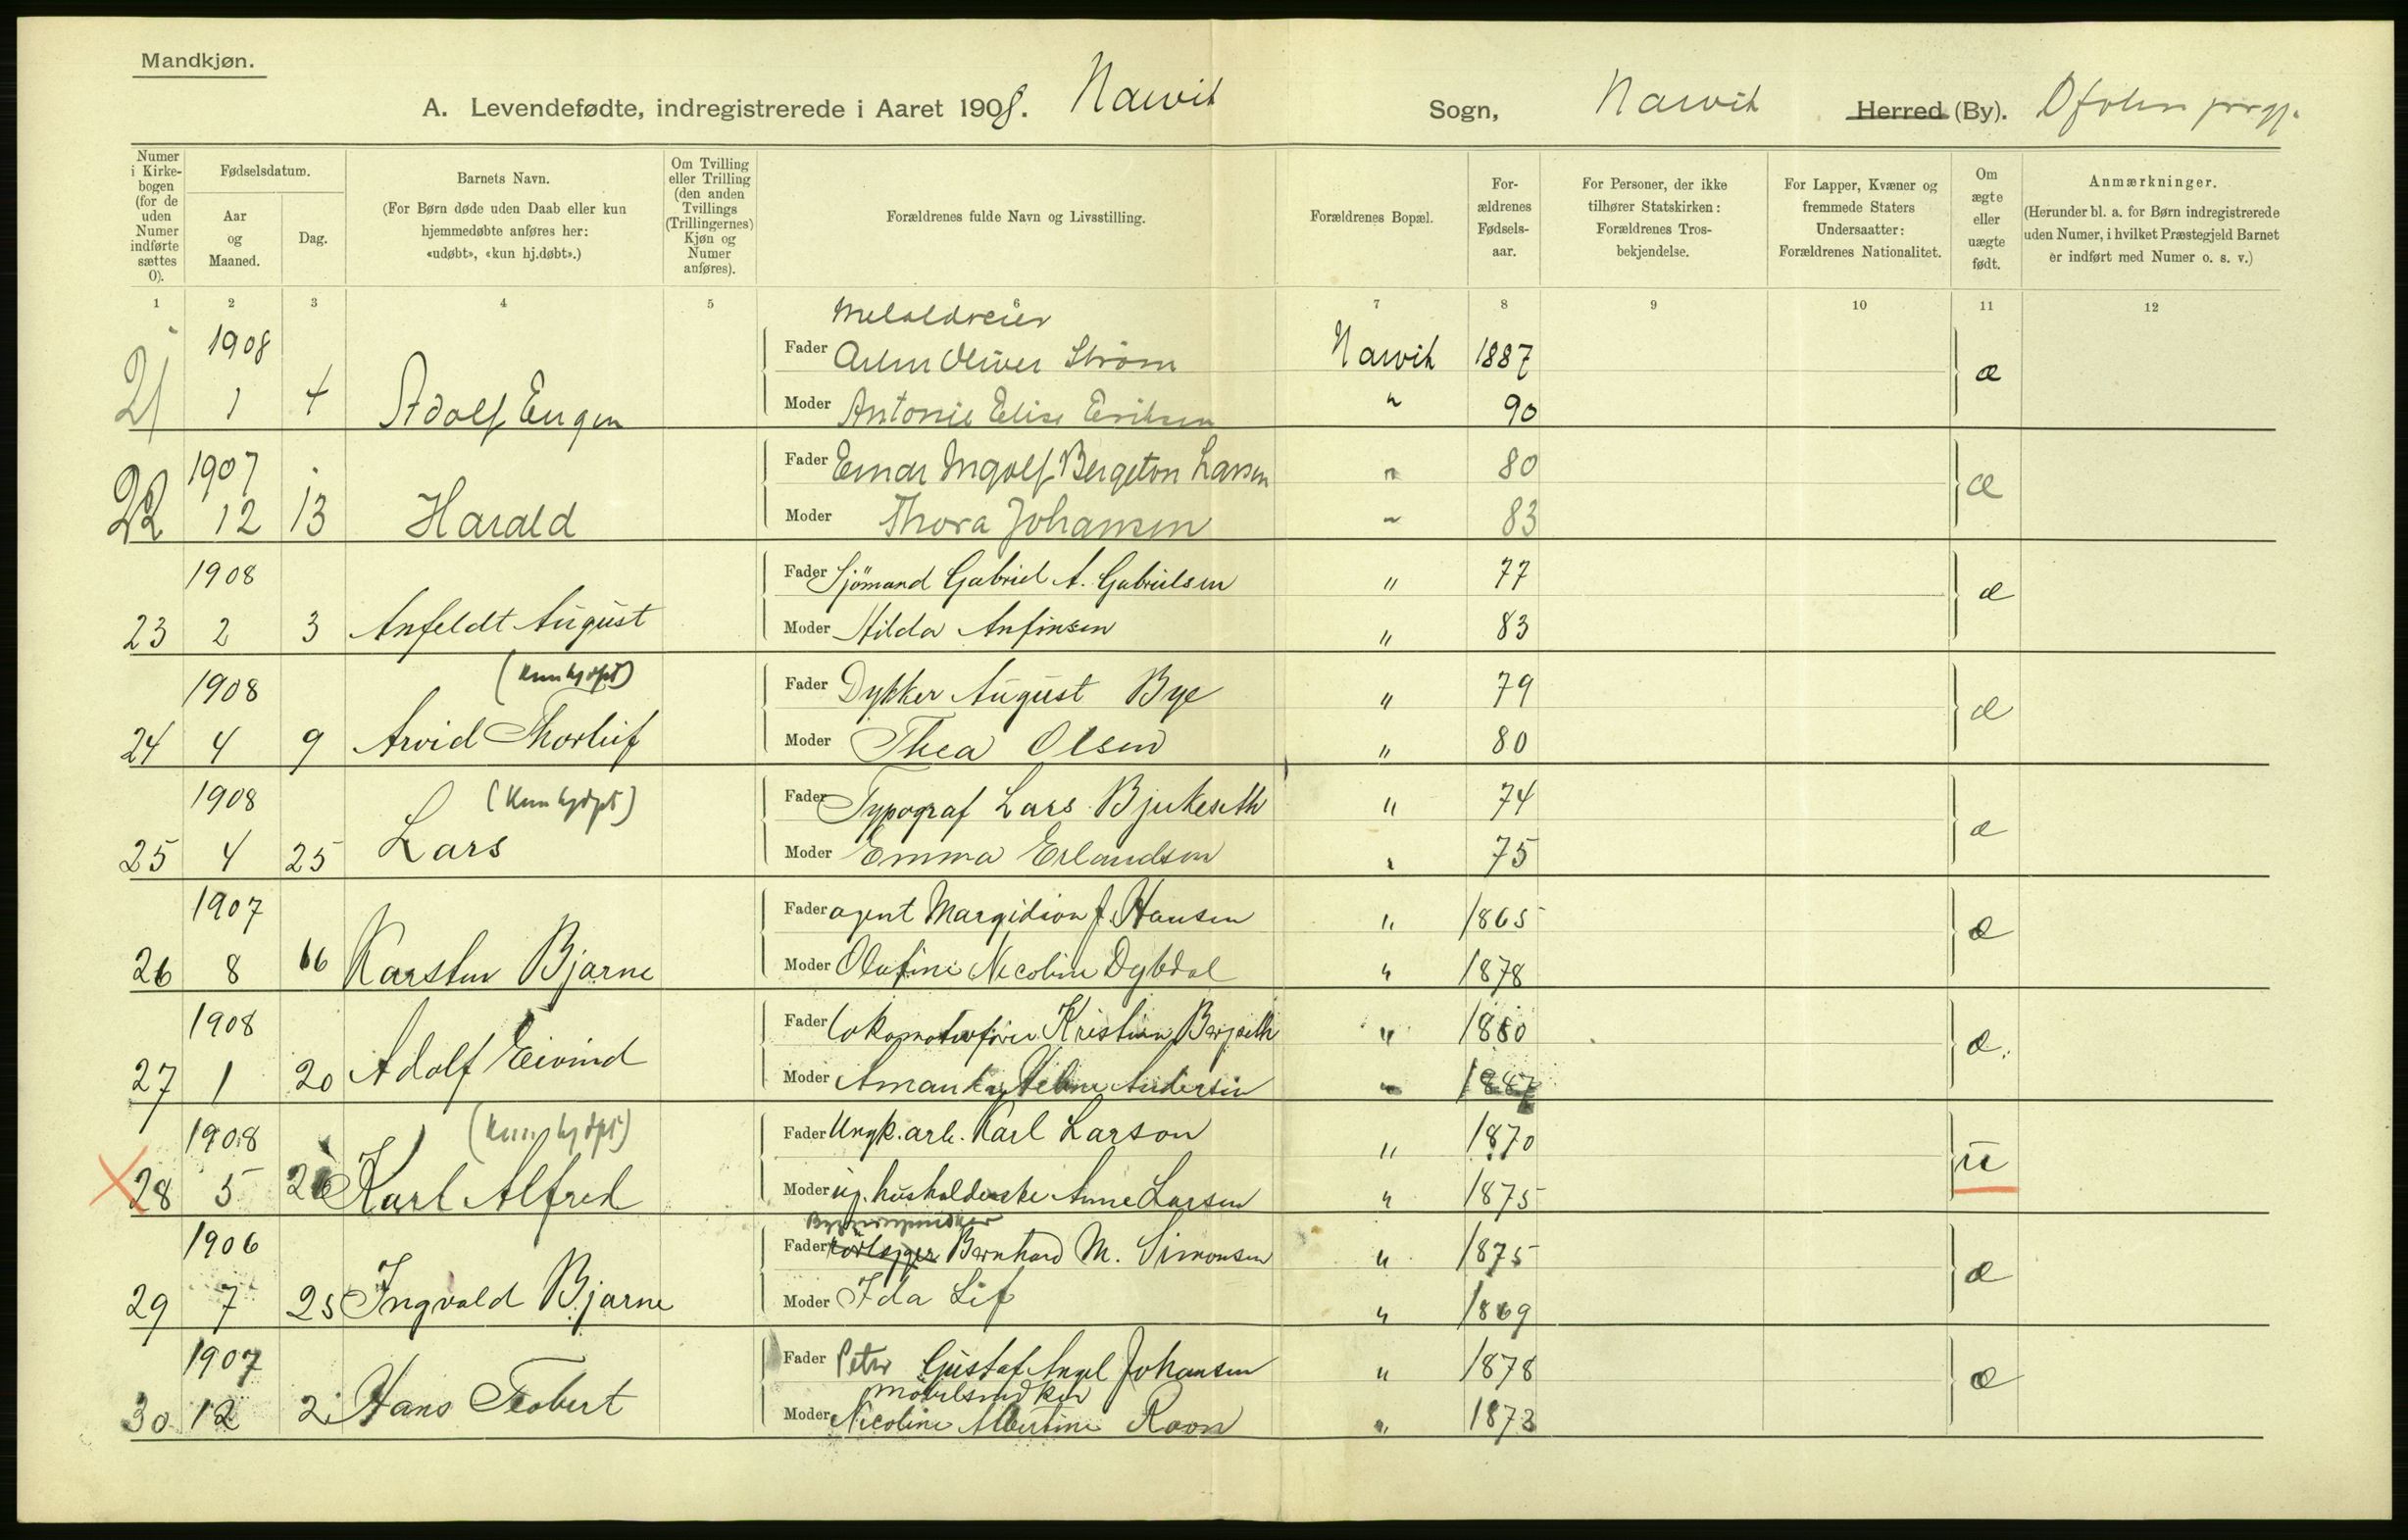 Mandkjøn.
A. Levendefødte, indregistrerede i Aaret 1908. Narvik Sogn, Narvik Herred (By). Ofoten prgj.
Numer i Kirkebogen (for de uden Numer indførte sættes 0).
Fødselsdatum.
Aar og Maaned.
Dag.
Barnets Navn.
(For Børn døde uden Daab eller kun hjemmedøbte anføres her: «udøbt», «kun hj.døbt».)
Om Tvilling eller Trilling (den anden Tvillings (Trillingernes) Kjøn og Numer anføres).
Forældrenes fulde Navn og Livsstilling.
Forældrenes Bopæl.
Forældrenes Fødselsaar.
For Personer, der ikke tilhører Statskirken: Forældrenes Trosbekjendelse.
For Lapper, Kvæner og fremmede Staters Undersaatter: Forældrenes Nationalitet.
Om ægte eller uægte født.
Anmærkninger.
(Herunder bl. a. for Børn indregistrerede uden Numer, i hvilket Præstegjeld Barnet er indført med Numer o. s. v.)
1 2 3 4 5 6 7 8 9 10 11 12
21 1908 1 4 Adolf Eugen
Fader Oliver Strøm Narvik 1887 æ
Moder Antonie Elise Eriksen " 90
22 1907 12 13 Harald
Fader Einar Ingolf Bergeton Larsen " 80 æ
Moder Thora Johansen " 83
23 1908 2 3 Anfeldt August
Fader Sjömand Gabriel A. Gabrielsen " 77 æ
Moder Hilda Anfinsen " 83
24 1908 4 9 Arvid Thorleif (kun hjdpt)
Fader Dykker August Bye " 79 æ
Moder Thea Olsen " 80
25 1908 4 25 Lars (kun hjdpt)
Fader Typograf Lars Bjukeseth " 74 æ
Moder Emma Erlandsen " 75
26 1907 8 16 Karsten Bjarne
Fader agent Margidion J. Hansen " 1865 æ
Moder Olafine Nicoline Dybdal " 1878
27 1908 1 20 Adolf Eivind
Fader Lokomotivfører Kristian Berjseth " 1880 æ.
Moder Amanda Andersen " 1887
28 1908 5 26 Karl Alfred (kun hjdpt)
Fader Ungk. arb. Karl Larson " 1870 u
Moder ug. husholderske Anne Larsen " 1875
29 1906 7 25 Ingvald Bjarne
Fader Bernhard M. Simonsen " 1875 æ
Moder Ida Lif " 1869
30 1907 12 2 Hans Teobert
Fader Peter Gustaf Angel Johansen " 1878 æ
Möbelsnedker
Moder Nicoline Albertine Roon " 1873